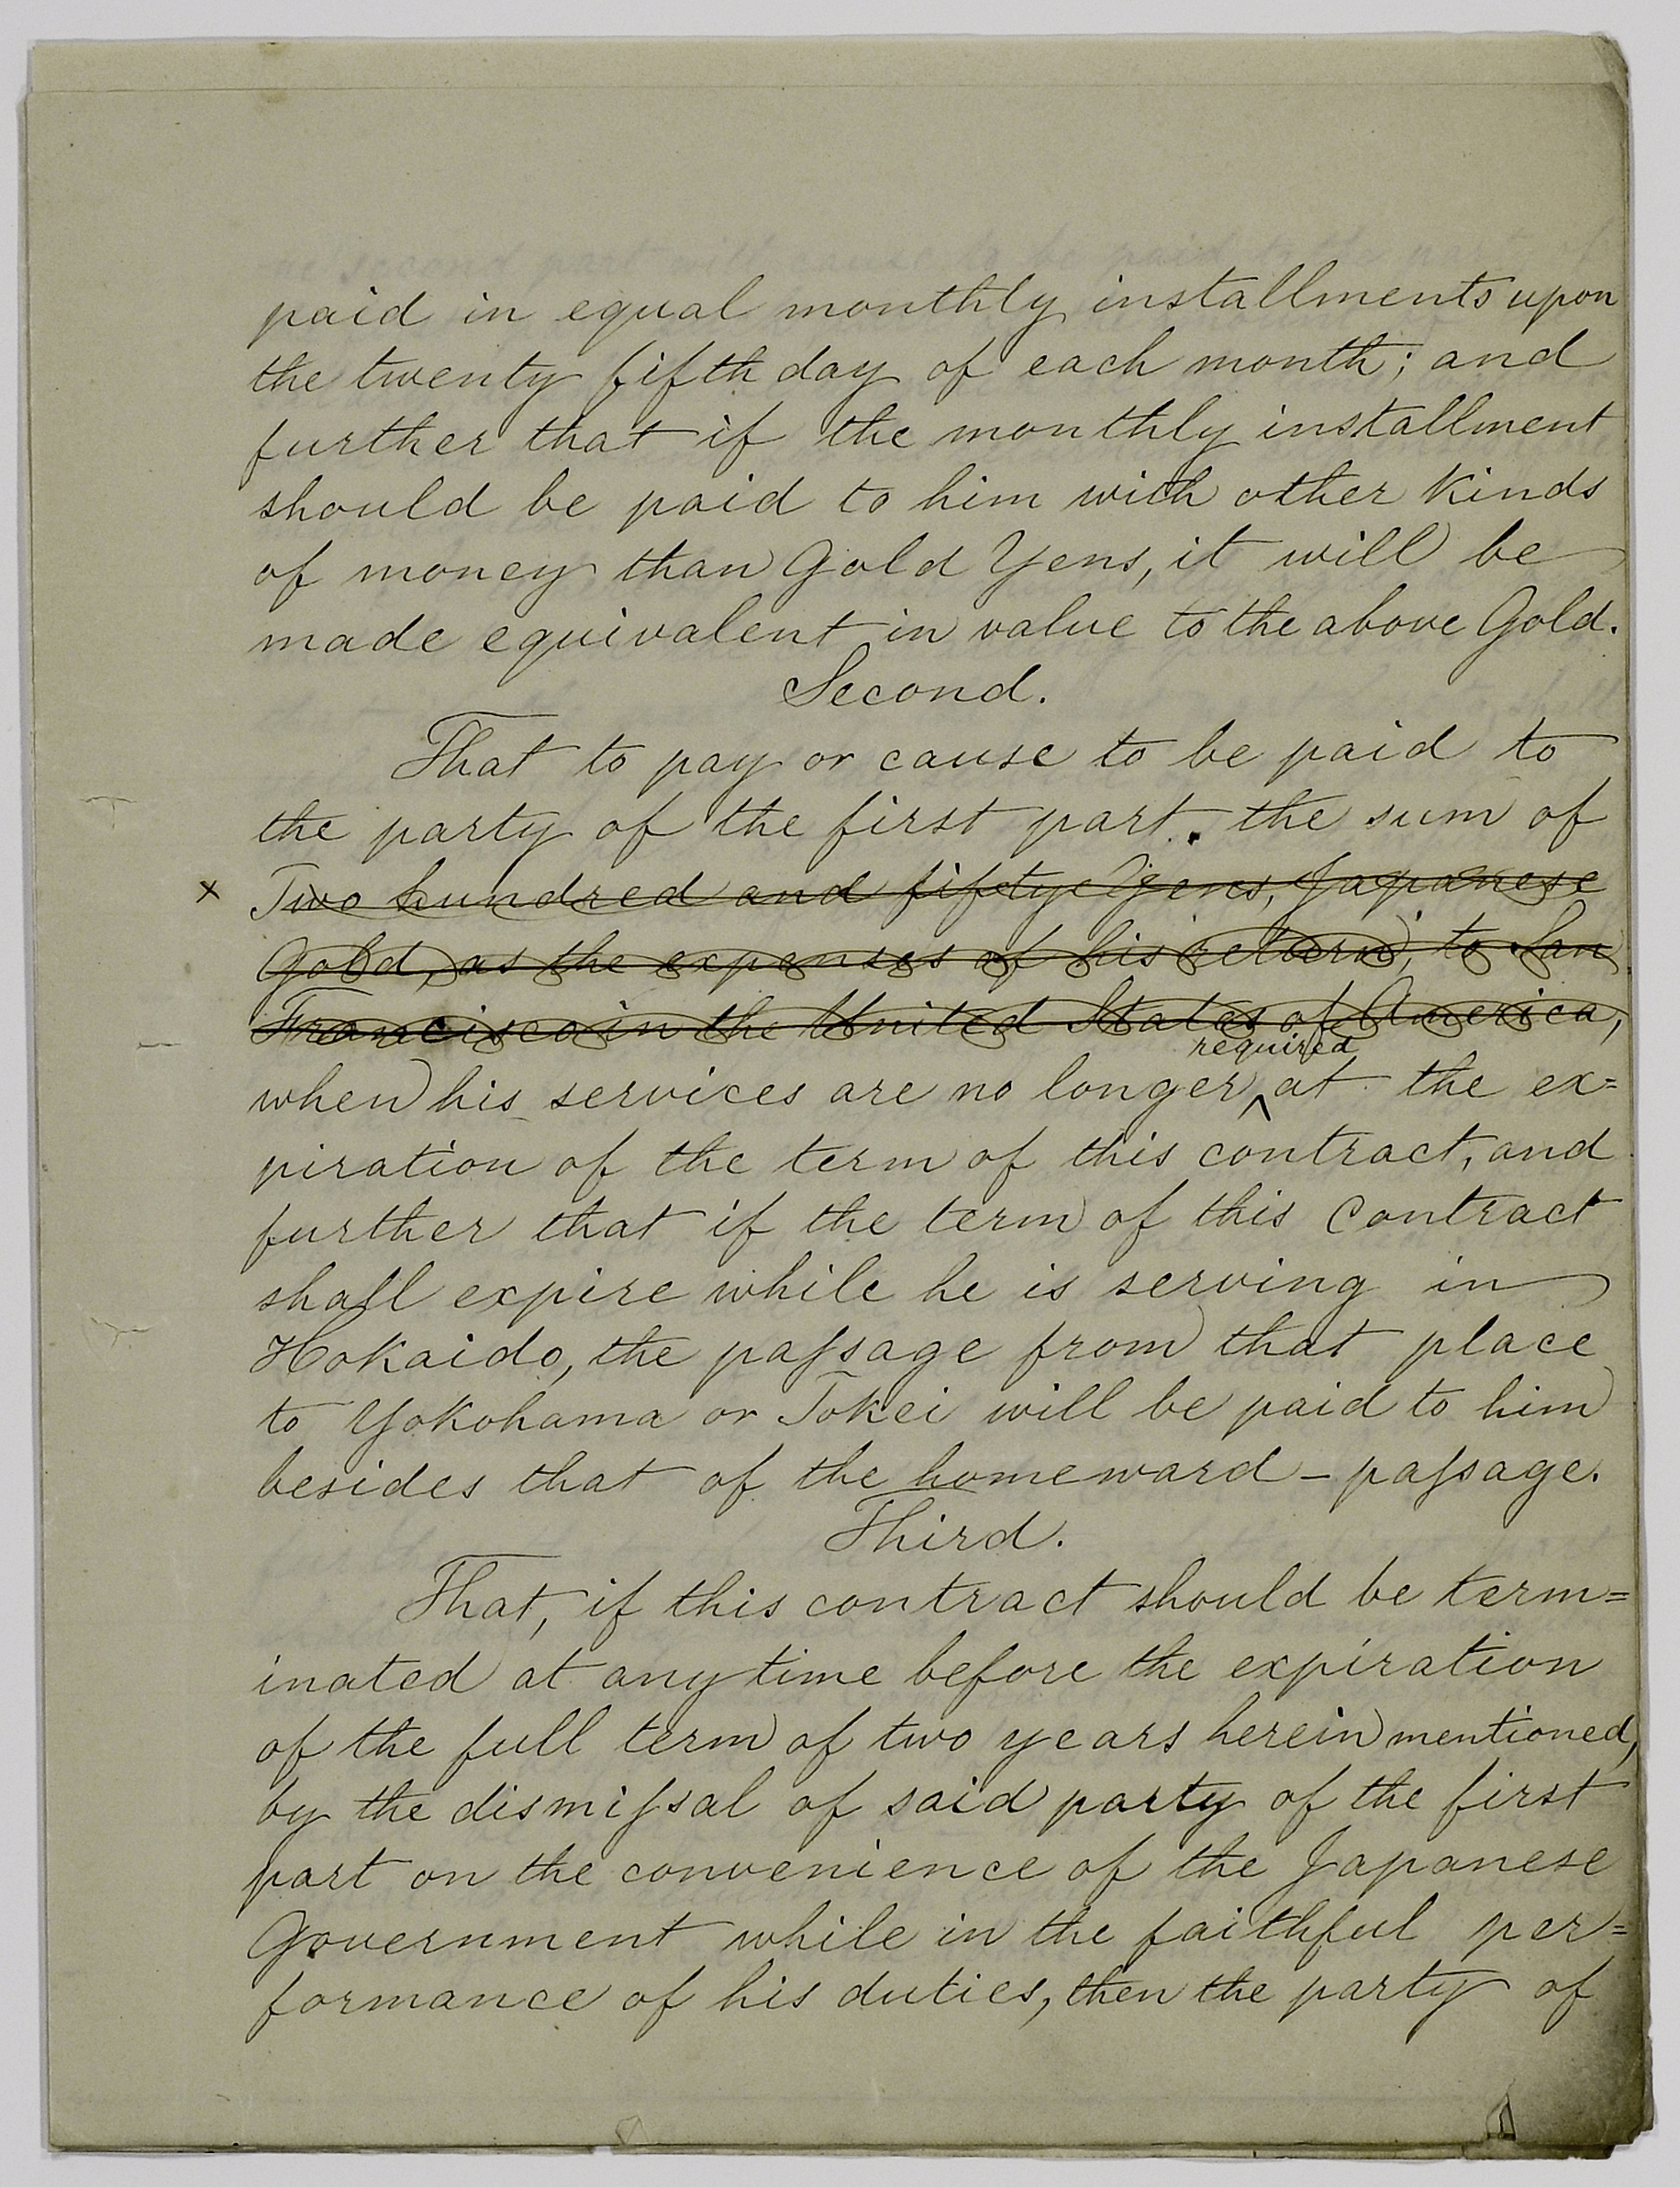 paid in equal monthly installments upon
the twenty fifth day of each month; and
further that if the monthly installment
should be paid to him with other kinds
of money than Gold Yens, it will be
made equivalent in value to the above Gold.
Second.
That to pay or cause to be paid to
the party of the first part. the sum of
x Two hundred and fifty Yens, Japanese
Gold, as the expenses of his return, to San
Francisco in the United States of America,
required
when his services are no longer ^ at the ex=
piration of the term of this contract, and
further that if the term of this Contract
shall expire while he is serving in
Hokaido, the paſsage from that place
to Yokohama or Tokei will be paid to him
besides that of the homeward - paſsage.
Third.
That, if this contract should be term=
inated at any time before the expiration
of the full term of two years herein mentioned,
by the dismiſsal of said party of the first
part on the convenience of the Japanese
Government while in the faithful per=
formance of his duties, then the party of